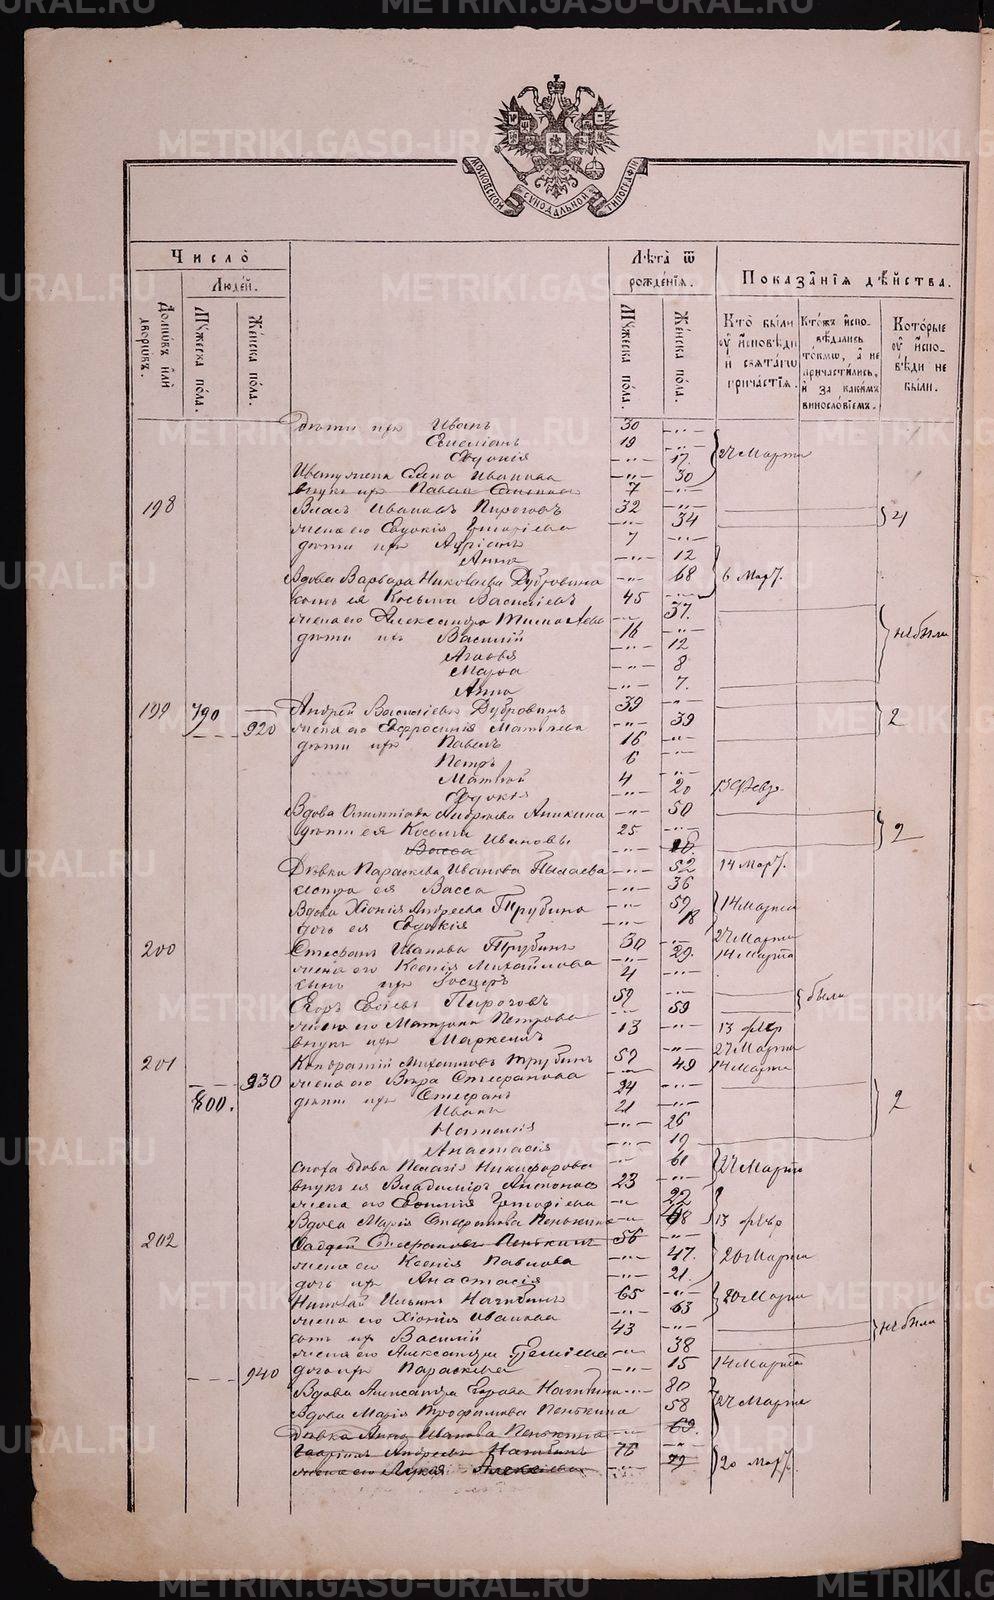 МОСКОВСКОЙ СѴНОДАЛЬНОЙ ТИПОГРАФІИ
Число̀
Людей.
Домовъ или дворовъ.
Мꙋжеска пола.
Женска пола.
Лѣта ѿ рожденїѧ.
Мꙋжеска пола.
Женска пола.
Показанїѧ дѣйства.
Кто были ꙋ исповѣди и свѧтагѡ причастїѧ.
Ктожъ исповѣдались токмѡ, а не причастились, и за какимъ винословїемъ.
Которые ꙋ исповѣди не были.
дѣти ихъ Иванъ 30
Емеліанъ 19
Евдокія 17 24 Марта
Ивану жена Анна Иванова 30
внукъ ихъ Павелъ 7
198 Власъ Ивановъ Пироговъ 32
жена его Евдокія 34 4
дѣти ихъ Адріанъ 7
Анна 12
Вдова Варвара Дубровина 68 6 Март.
сынъ ея Косьма Василіевъ 45
жена его Александра 37
дѣти ихъ Василій 16 не были
Агаѳья 12
Марѳа 8
Анна 7
199 790 Андрей Василіевъ Дубровинъ 39
920 жена его Евфросинія Матвѣева 39 2
дѣти ихъ Павелъ 16
Петръ 6
Матвѣй 4
Евдокія 20 13 Февр.
Вдова Андреева Аникина 50
дѣти ея Косьма Ивановы 25 2
Васса
Дѣвка Параскева Иванова 52 14 Март.
сестра ея Васса 36
Вдова Хіонія Андреева Трубина 59 14 Марта
дочь ея Евдокія 18 24 Марта
200 Стефанъ Ивановъ Трубинъ 30 14 Марта
жена его Ксенія Михайлова 29
сынъ ихъ 4
Егоръ Пироговъ 59 были
жена его Матрона Петрова 59
внукъ ихъ Маркеллъ 13 13 фвр
201 Кондратій Михаиловъ Трубинъ 59 27 Марта
930 жена его Вѣра Стефанова 49 14 Марта
800. дѣти ихъ Стефанъ 24
Иванъ 21 2
Наталія 26
Анастасія 19
сноха вдова Пелагія Никифорова 61 24 Марта
внукъ ея Владиміръ 23
жена его 22
Вдова Марія Пенькина 68 13 фвр
202 Фаддей Стефановъ Пенькинъ 56
жена его Ксенія Павлова 47 20 Марта
дочь ихъ Анастасія 21
Николай Ильинъ Нагибинъ 65 20 Марта
жена его Хіонія Иванова 63
сынъ ихъ Василій 43 не были
жена его Александра 38
940 дочь ихъ Параскева 15 14 Марта
Вдова Александра Нагибина 80
Вдова Марія Трофимова Пенькина 58 24 Марта
Дѣвка Анна Иванова Пенькина 69
Гавріилъ Андреевъ Нагибинъ 76
жена его Лукія Алексіева 79 20 Март.
METRIKI.GASO-URAL.RU